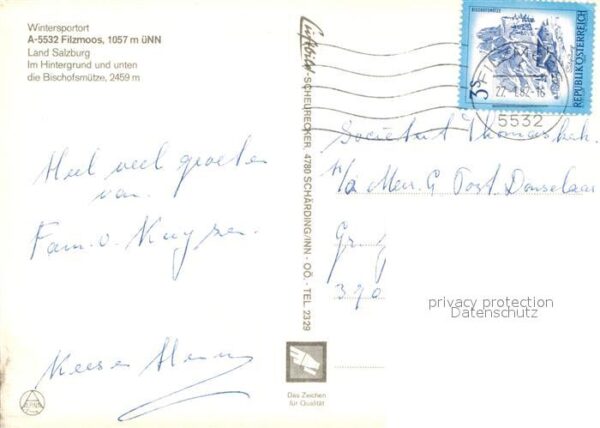 Wintersportort
A-5532 Filzmoos, 1057 m üNN
Land Salzburg
Im Hintergrund und unten
die Bischofsmütze, 2459 m
Heel veel groeten
van
Fam. v. Kuyzen.
Kees
Luftbild SCHEURECKER, 4780 SCHÄRDING/INN - OÖ. - TEL. 2329
Das Zeichen
für Qualität
BISCHOFSMÜTZE
3S
REPUBLIK ÖSTERREICH
27.-1.82-16
5532
Societeit Thomas
p/a Men. G Post
privacy protection
Datenschutz